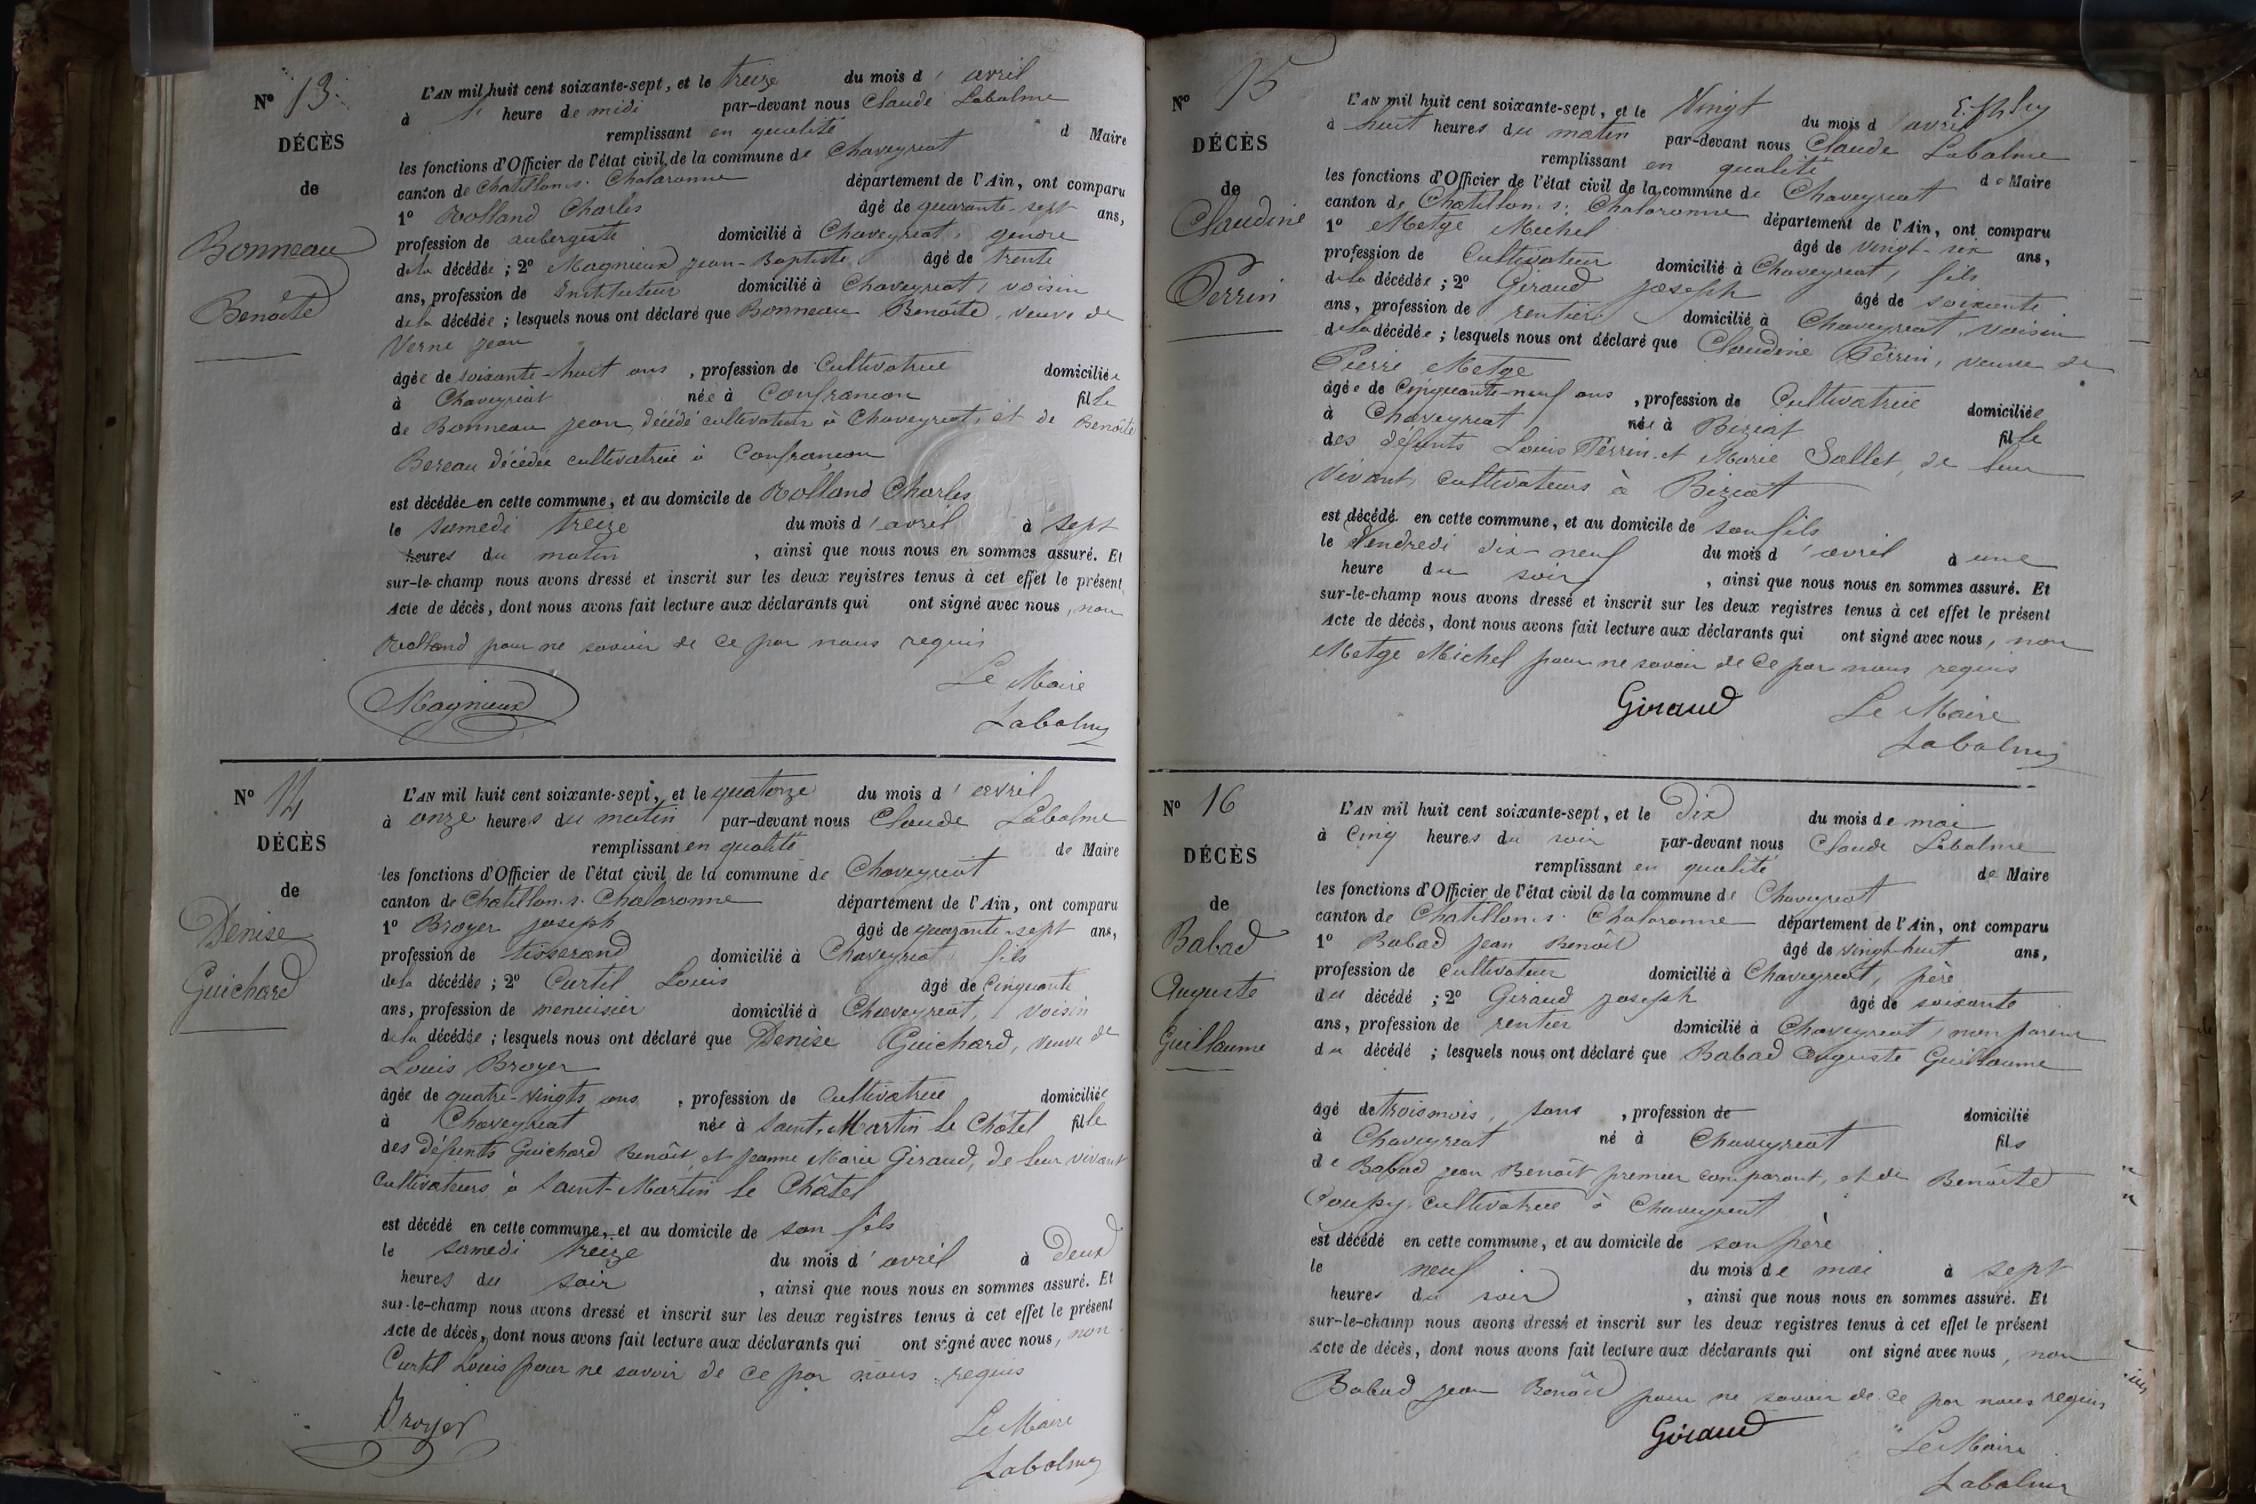 N° 13.
DÉCÈS
de
Bonneau
Benoîte
L'AN mil huit cent soixante-sept, et le treize du mois d'avril
à heure de midi par-devant nous Claude Labalme
remplissant en qualité d Maire
les fonctions d'Officier de l'état civil de la commune de Chaveyriat
canton de Chatillon s. Chalaronne département de l'Ain, ont comparu
1° Rolland Charles âgé de quarante-sept ans,
profession de aubergiste domicilié à Chaveyriat, gendre
de la décédée ; 2° Magnieux jean-Baptiste âgé de trente
ans, profession de Instituteur domicilié à Chaveyriat, voisin
de la décédée ; lesquels nous ont déclaré que Bonneau Benoîte, veuve de
Verne jean
âgée de soixante-huit ans, profession de Cultivatrice domiciliée
à Chaveyriat née à Confrançon fille
de Bonneau jean, décédé cultivateur à Chaveyriat, et de Benoîte
Bereau décédée cultivatrice à Confrançon
est décédée en cette commune, et au domicile de Rolland Charles
le samedi treize du mois d'avril à sept
heures du matin, ainsi que nous nous en sommes assuré. Et
sur-le-champ nous avons dressé et inscrit sur les deux registres tenus à cet effet le présent
Acte de décès, dont nous avons fait lecture aux déclarants qui ont signé avec nous, non
Rolland pour ne savoir de ce par nous requis
Le Maire
Magnieux
Labalme
N° 14
DÉCÈS
de
Denise
Guichard
L'AN mil huit cent soixante-sept, et le quatorze du mois d'avril
à onze heures du matin par-devant nous Claude Labalme
remplissant en qualité de Maire
les fonctions d'Officier de l'état civil de la commune de Chaveyriat
canton de Chatillon s. Chalaronne département de l'Ain, ont comparu
1° Broyer joseph âgé de quarante-sept ans,
profession de tisserand domicilié à Chaveyriat, fils
de la décédée ; 2° Curtil Louis âgé de Cinquante
ans, profession de menuisier domicilié à Chaveyriat, voisin
de la décédée ; lesquels nous ont déclaré que Denise Guichard, veuve de
Louis Broyer
âgée de quatre-vingts ans, profession de Cultivatrice domiciliée
à Chaveyriat née à Saint-Martin le Châtel fille
des Défunts Guichard Benoît, et jeanne Marie Giraud, de leur vivant
Cultivateurs à Saint-Martin le Châtel
est décédé en cette commune, et au domicile de son fils
le samedi treize du mois d'avril à Deux
heures du soir, ainsi que nous nous en sommes assuré. Et
sur-le-champ nous avons dressé et inscrit sur les deux registres tenus à cet effet le présent
Acte de décès, dont nous avons fait lecture aux déclarants qui ont signé avec nous, non
Curtil Louis pour ne savoir de ce par nous requis
Broyer
Le Maire
Labalme
N° 15
DÉCÈS
de
Claudine
Perrin
L'AN mil huit cent soixante-sept, et le Vingt du mois d'avril
à huit heures du matin par-devant nous Claude Labalme
remplissant en qualité de Maire
les fonctions d'Officier de l'état civil de la commune de Chaveyriat
canton de Chatillon s. Chalaronne département de l'Ain, ont comparu
1° Metge Michel âgé de vingt-six ans,
profession de Cultivateur domicilié à Chaveyriat, fils
de la décédée ; 2° Giraud joseph âgé de soixante
ans, profession de rentier domicilié à Chaveyriat, voisin
de la décédée ; lesquels nous ont déclaré que Claudine Perrin, veuve de
Pierre Metge
âgée de Cinquante-neuf ans, profession de Cultivatrice domiciliée
à Chaveyriat née à Biziat fille
des défunts Louis Perrin et Marie Sallet, de leur
Vivant cultivateurs à Biziat
est décédé en cette commune, et au domicile de son fils
le Vendredi dix-neuf du mois d'avril à une
heure du soir, ainsi que nous nous en sommes assuré. Et
sur-le-champ nous avons dressé et inscrit sur les deux registres tenus à cet effet le présent
Acte de décès, dont nous avons fait lecture aux déclarants qui ont signé avec nous, non
Metge Michel pour ne savoir de ce par nous requis
Giraud Le Maire
Labalme
N° 16
DÉCÈS
de
Babad
Auguste
Guillaume
L'AN mil huit cent soixante-sept, et le Dix du mois de mai
à Cinq heures du soir par-devant nous Claude Labalme
remplissant en qualité de Maire
les fonctions d'Officier de l'état civil de la commune de Chaveyriat
canton de Chatillon s. Chalaronne département de l'Ain, ont comparu
1° Babad jean Benoît âgé de vingt-huit ans,
profession de cultivateur domicilié à Chaveyriat, père
du décédé ; 2° Giraud joseph âgé de soixante
ans, profession de rentier domicilié à Chaveyriat, non parent
du décédé ; lesquels nous ont déclaré que Babad Auguste Guillaume
âgé de trois mois, sans, profession de domicilié
à Chaveyriat né à Chaveyriat fils
de Babad jean Benoît premier comparant, et de Benoîte
Coupy cultivatrice à Chaveyriat
est décédé en cette commune, et au domicile de son père
le neuf du mois de mai à sept
heures du soir, ainsi que nous nous en sommes assuré. Et
sur-le-champ nous avons dressé et inscrit sur les deux registres tenus à cet effet le présent
Acte de décès, dont nous avons fait lecture aux déclarants qui ont signé avec nous, non
Babad jean Benoît pour ne savoir de ce par nous requis
Giraud Le Maire
Labalme